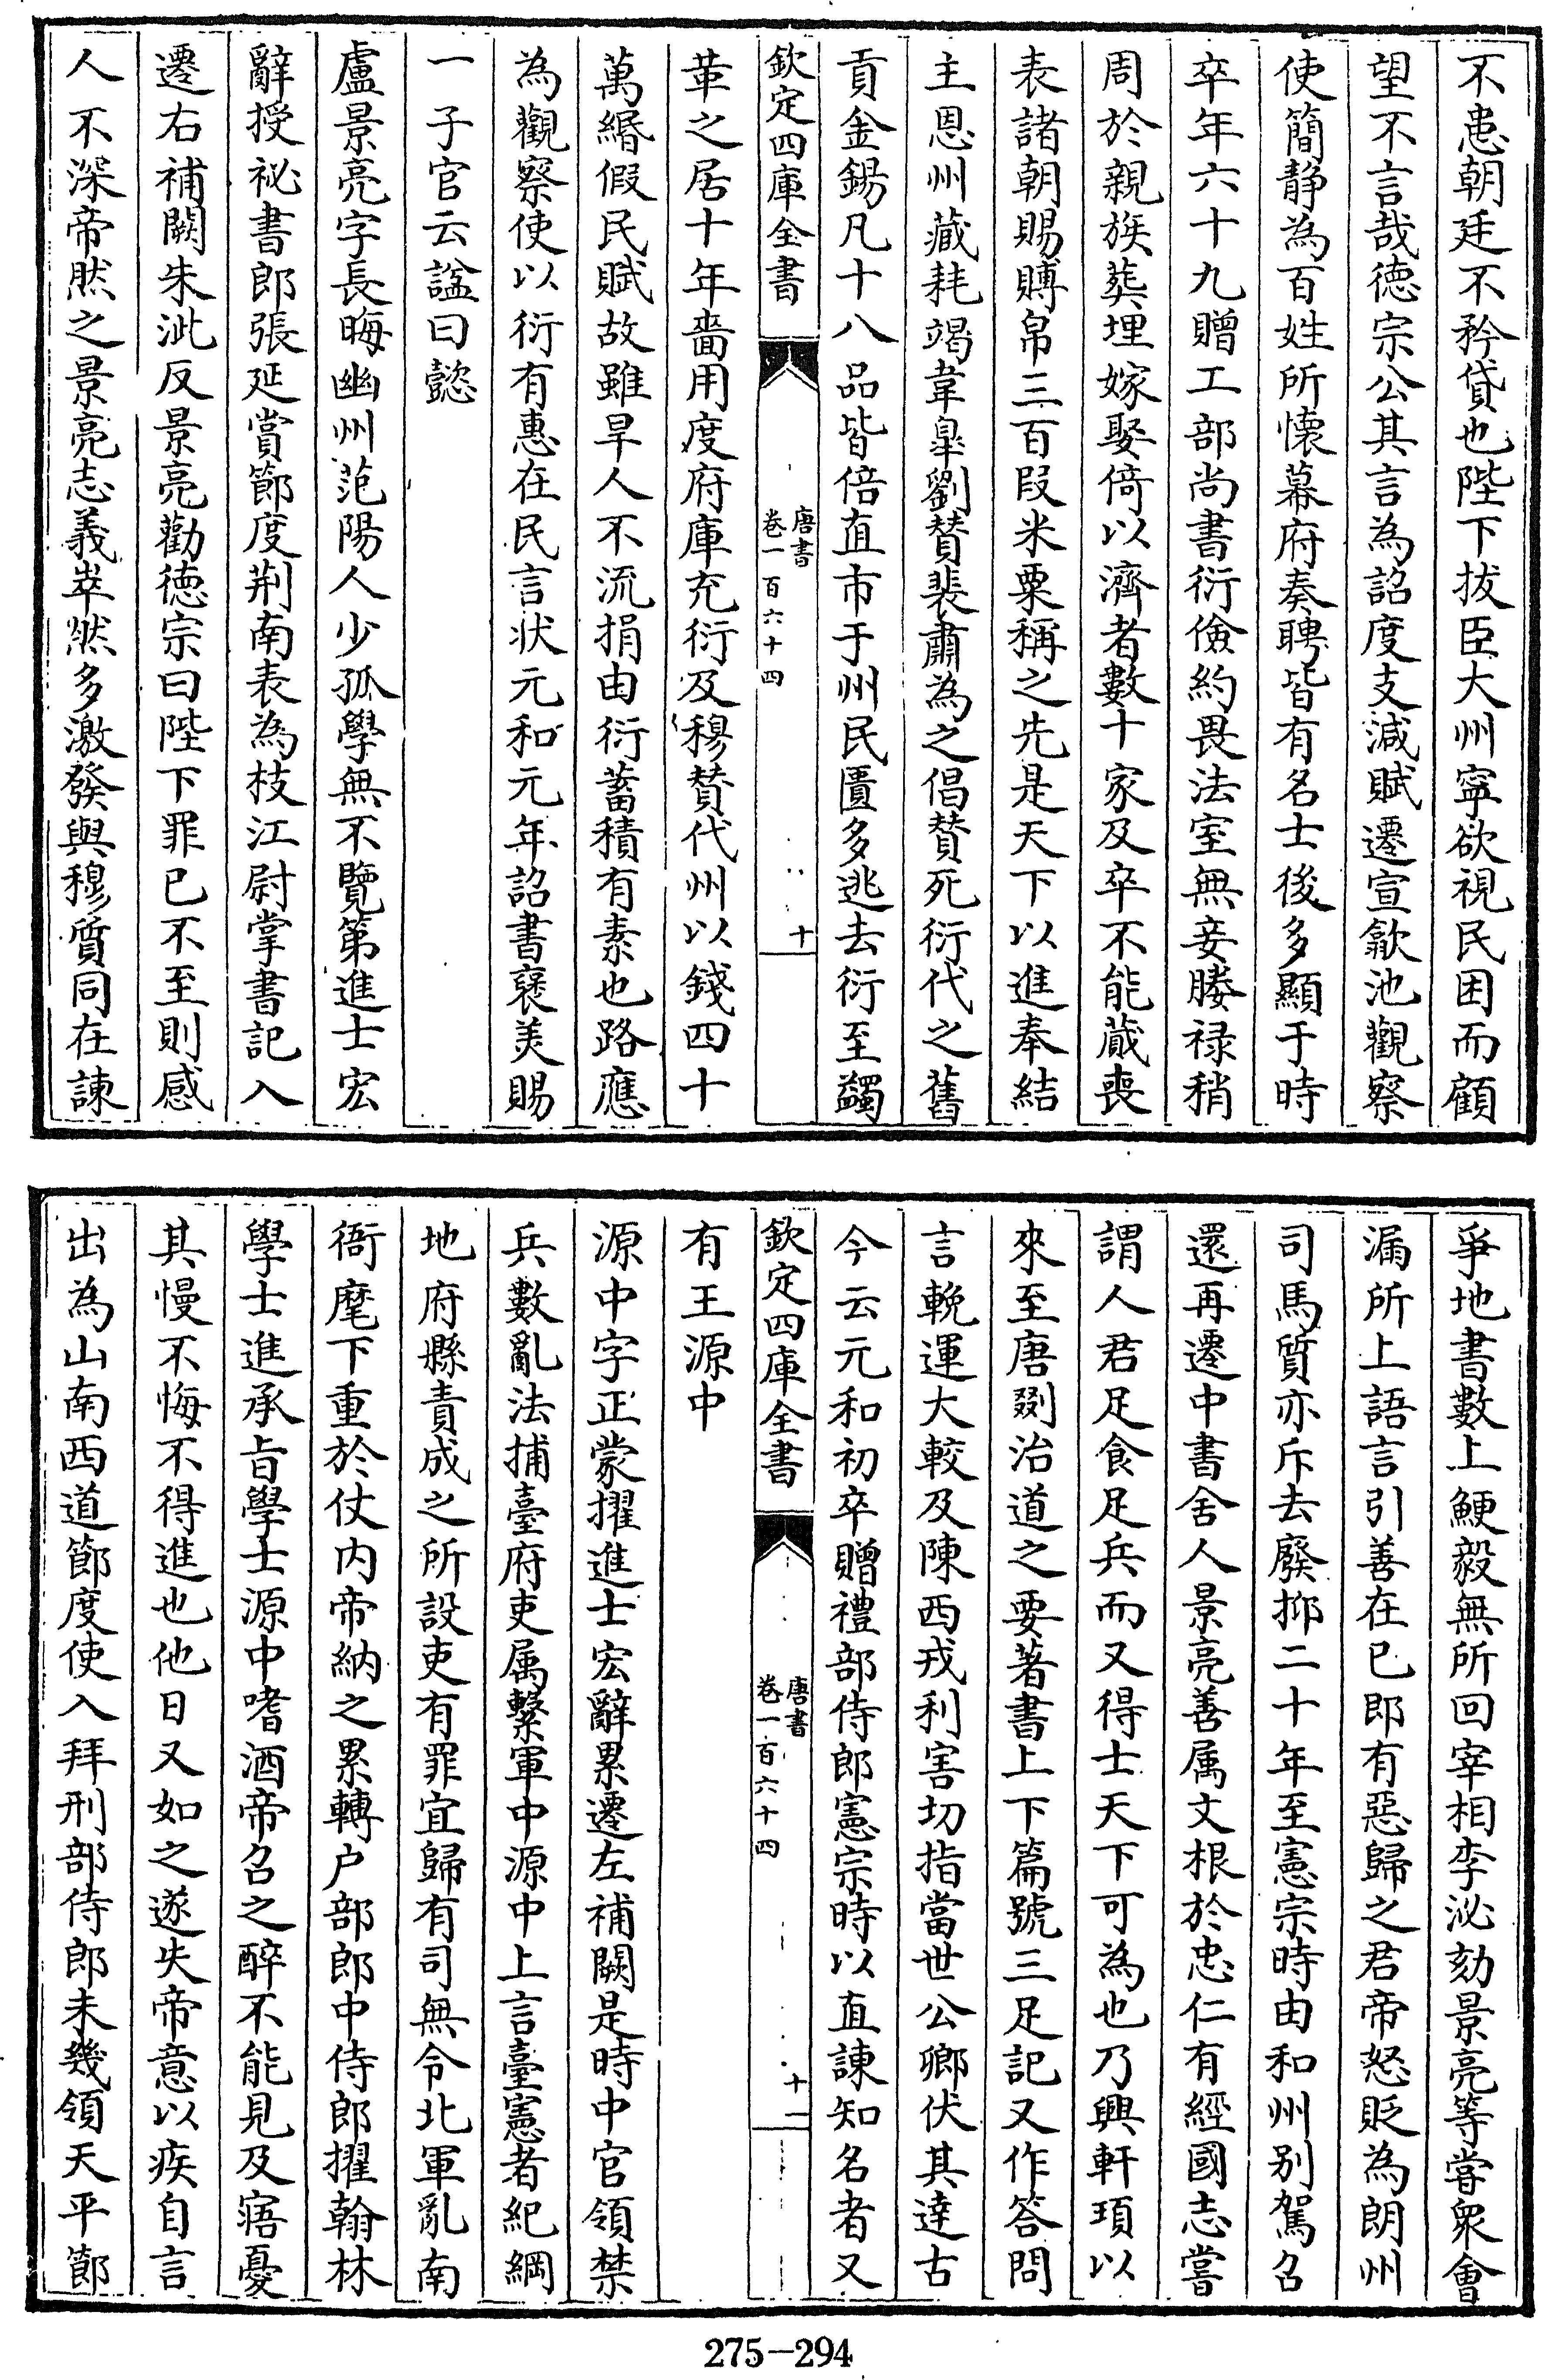 不患朝廷不矜貸也陛下拔臣大州寧欲視民困而顧
望不言哉德宗公其言為詔度支減賦遷宣歙池觀察
使簡靜為百姓所懷幕府奏聘皆有名士後多顯于時
卒年六十九贈工部尚書衍儉約畏法室無妾媵祿稍
周於親族葬埋嫁娶倚以濟者數十家及卒不能蕆喪
表諸朝賜賻帛三百段米粟稱之先是天下以進奉結
主恩州藏耗竭韋臯劉贊裴肅為之倡贊死衍代之舊
貢金錫凡十八品皆倍直市于州民匱多逃去衍至蠲
欽定四庫全書
唐書
卷一百六十四
十
革之居十年嗇用度府庫充衍及穆贊代州以錢四十
萬緡假民賦故雖旱人不流捐由衍蓄積有素也路應
為觀察使以衍有惠在民言狀元和元年詔書褒美賜
一子官云諡曰懿
盧景亮字長晦幽州范陽人少孤學無不覽第進士宏
辭授祕書郎張延賞節度荆南表為枝江尉掌書記入
遷右補闕朱泚反景亮勸德宗曰陛下罪已不至則感
人不深帝然之景亮志義崒然多激發與穆質同在諫
爭地書數上鯁毅無所回宰相李泌劾景亮等嘗衆會
漏所上語言引善在已即有惡歸之君帝怒貶為朗州
司馬質亦斥去廢抑二十年至憲宗時由和州别駕召
還再遷中書舍人景亮善属文根於忠仁有經國志嘗
謂人君足食足兵而又得士天下可為也乃興軒頊以
來至唐剟治道之要著書上下篇號三足記又作答問
言輓運大較及陳西戎利害切指當世公卿伏其達古
今云元和初卒贈禮部侍郎憲宗時以直諫知名者又
欽定四庫全書
唐書
卷一百六十四
十一
有王源中
源中字正蒙擢進士宏辭累遷左補闕是時中官領禁
兵數亂法捕臺府吏属繫軍中源中上言臺憲者紀綱
地府縣責成之所設吏有罪宜歸有司無令北軍亂南
衙麾下重於仗内帝納之累轉户部郎中侍郎擢翰林
學士進承旨學士源中嗜酒帝召之醉不能見及寤憂
其慢不悔不得進也他日又如之遂失帝意以疾自言
出為山南西道節度使入拜刑部侍郎未幾領天平節
275-294